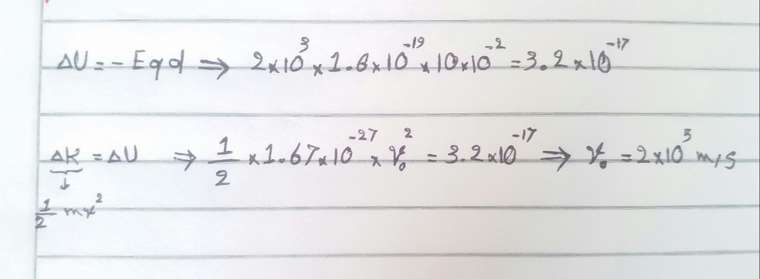 ΔU = - Eqd ⇒ 2×10³×1.6×10⁻¹⁹×10×10⁻² = 3.2×10⁻¹⁷
ΔK = ΔU ⇒ 1/2 ×1.67×10⁻²⁷× V₀² = 3.2×10⁻¹⁷ ⇒ V₀ = 2×10⁵ m/s
↓
1/2 mx²